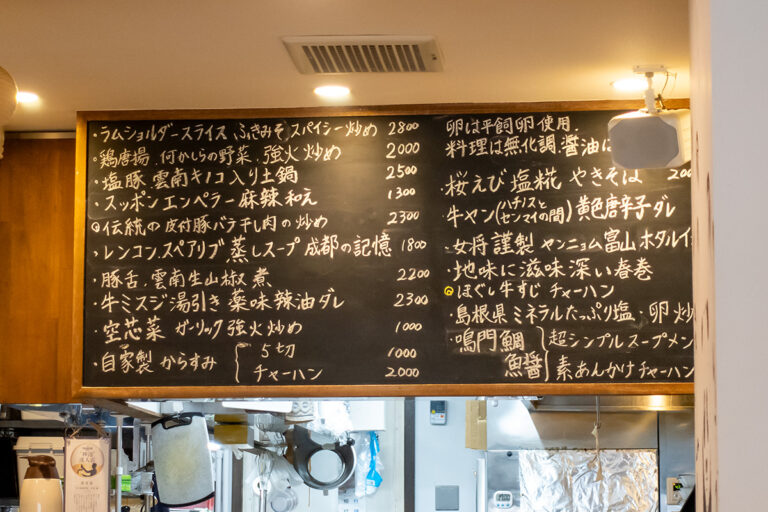 ・ラムショルダースライス ふきみそ スパイシー炒め 2800
・鶏唐揚 何かしらの野菜 強火炒め 2000
・塩豚 雲南キノコ入り土鍋 2500
・スッポンエンペラー 麻辣和え 1300
伝統の皮付豚バラ干し肉の炒め 2300
・レンコン.スペアリブ 蒸しスープ 成都の記憶 1800
・豚舌.雲南生山椒煮 2200
・牛ミスジ湯引き 薬味辣油ダレ 2300
・空芯菜 ガーリック強火炒め 1000
・自家製 からすみ
5切 1000
チャーハン 2000
卵は平飼卵使用.
料理は無化調.醤油に
・桜えび 塩糀 やきそば 200
・牛ヤン(ハチノスとセンマイの間) 黄色唐辛子ダレ
・女将謹製 ヤンニョム富山ホタルイ
・地味に滋味深い春巻
ほぐし牛すじ チャーハン
・島根県 ミネラルたっぷり塩・卵炒
・鳴門鯛 魚醤
超シンプルスープメン
素あんかけチャーハン